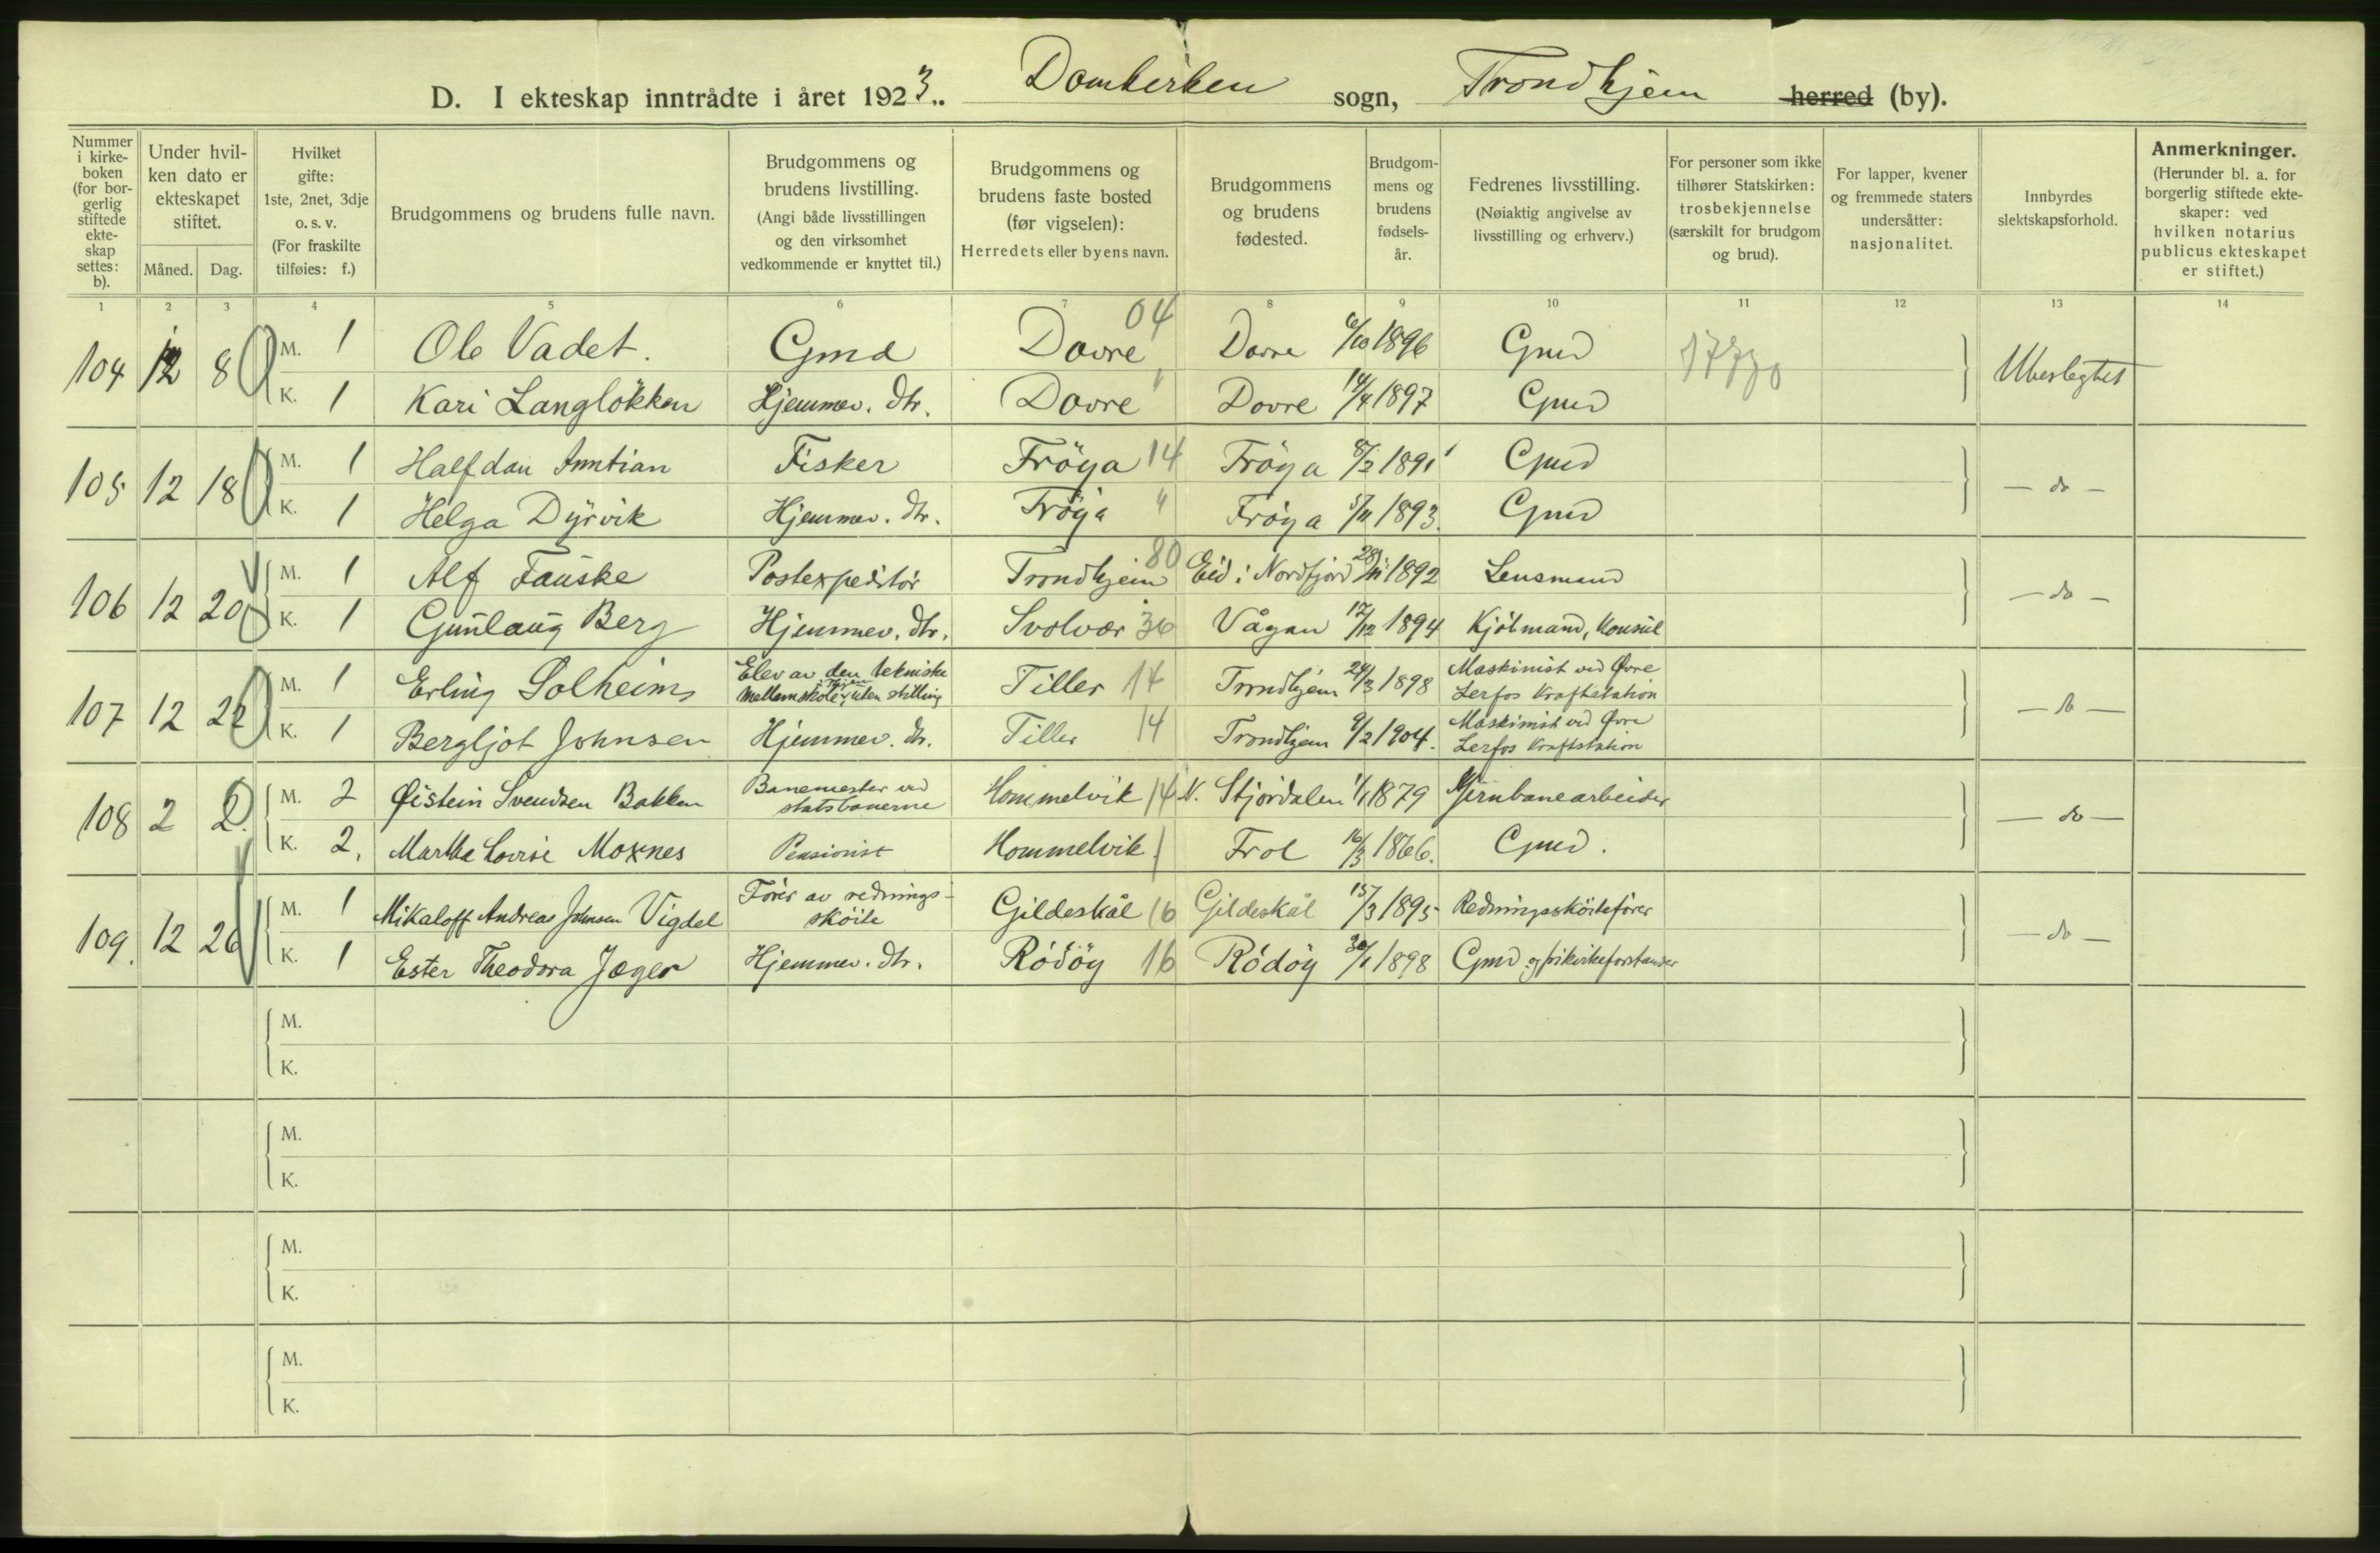 D. I ekteskap inntrådte i året 1923. Domkirken sogn, Trondhjem herred (by).
Nummer i kirkeboken (for borgerlig stiftede ekteskap settes: b).
Under hvilken dato er ekteskapet stiftet.
Måned. Dag.
Hvilket gifte: 1ste, 2net, 3dje o. s. v. (For fraskilte tilføies: f.)
Brudgommens og brudens fulle navn.
Brudgommens og brudens livstilling. (Angi både livsstillingen og den virksomhet vedkommende er knyttet til.)
Brudgommens og brudens faste bosted (før vigselen): Herredets eller byens navn.
Brudgommens og brudens fødested.
Brudgommens og brudens fødselsår.
Fedrenes livsstilling. (Nøiaktig angivelse av livsstilling og erhverv.)
For personer som ikke tilhører Statskirken: trosbekjennelse (særskilt for brudgom og brud).
For lapper, kvener og fremmede staters undersåtter: nasjonalitet.
Innbyrdes slektskapsforhold.
Anmerkninger. (Herunder bl. a. for borgerlig stiftede ekteskaper: ved hvilken notarius publicus ekteskapet er stiftet.)
1 2 3 4 5 6 7 8 9 10 11 12 13 14
104 12 8 M. 1 Ole Vadet. Gmd Dovre 04 Dovre 6/10 1896 Gmd
K. 1 Kari Langlökken Hjemmev. dtr. Dovre " Dovre 14/4 1897 Gmd Ubeslegtet
105 12 18 M. 1 Halfdan Inntian Fisker Fröya 14 Fröya 8/2 1891 Gmd
K. 1 Helga Dyrvik Hjemmev. dtr. Fröya " Fröya 5/11 1893. Gmd — do —
106 12 20 M. 1 Alf Fauske Postexpeditör Trondhjem 80 Eid i Nordfjord 28/11 1892 Lensmand
K. 1 Gunlaug Berg Hjemmev. dtr. Svolvær 36 Vågan 17/12 1894 Kjöbmand, Konsul — do —
107 12 22 M. 1 Erling Solheim Elev av den tekniske Mellemskole uten stilling Tiller 14 Trondhjem 24/3 1898 Maskinist ved Øvre Lerfos Kraftstation
K. 1 Bergljot Johnsen Hjemmev. dtr. Tiller 14 Trondhjem 9/2 1904. Maskinist ved Øvre Lerfos Kraftstation — do —
108 2 2. M. 2 Øistein Svendsen Bakken Banemester ved statsbanerne Hommelvik 14 N. Stjördalen 1/1 1879 Jernbanearbeider
K. 2. Martha Lovise Moxnes Pensionist Hommelvik Frol 16/3 1866. Gmd. — do —
109. 12 26 M. 1 Mikaloff Andreas Johnsen Vigdel Förer av rednings-sköite Gildeskål 16 Gildeskål 15/3 1895 Redningssköitefører
K. 1 Ester Theodora Jæger Hjemmev. dtr. Rödöy 16 Rödöy 30/1 1898 Gmd og frikirkeforstander — do —
M.
K.
M.
K.
M.
K.
M.
K.